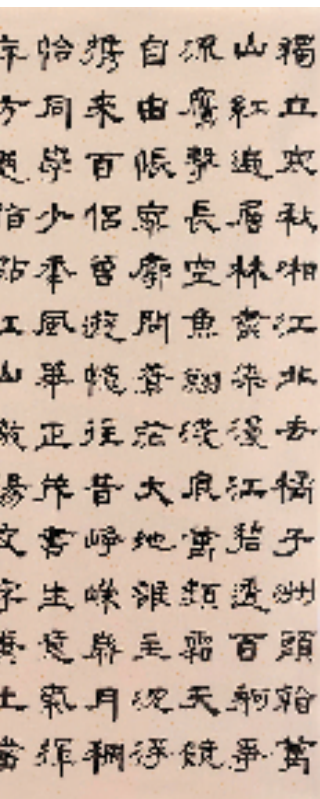 獨立寒秋湘江北去橘子洲頭看萬
山紅遍層林盡染漫江碧透百舸爭
流鷹擊長空魚翔淺底萬類霜天競
自由悵寥廓問蒼茫大地誰主沈浮
攜來百侶曾遊憶往昔崢嶸歲月稠
恰同學少年風華正茂書生意氣揮
方遒指點江山激揚文字糞土當